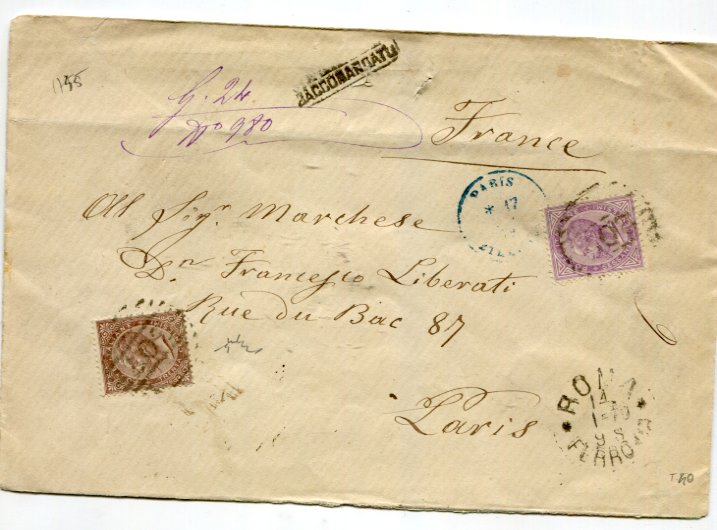 RACCOMANDATO
G. 24
No 980
France
PARIS
17
Al Sigr. Marchese
Dn Francesco Liberati
Rue du Bac 87
Paris
6
ROMA
14
FERROVIA